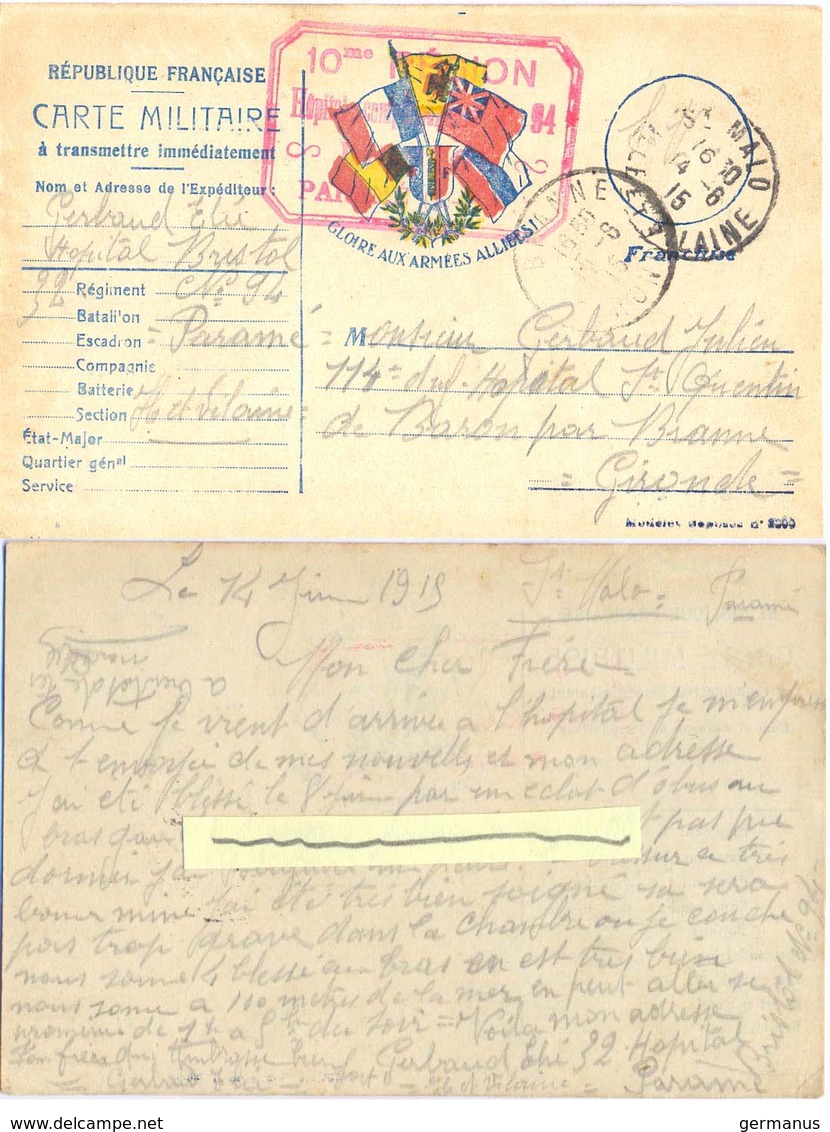 RÉPUBLIQUE FRANÇAISE
CARTE MILITAIRE
à transmettre immédiatement
Nom et Adresse de l'Expéditeur:
Gerbaud Elie
Hopital Bristol
32 Régiment No 94
Batail'on
Escadron = Paramé =
Compagnie
Batterie
Section Ile et Vilaine =
État-Major
Quartier génal
Service
10me RÉGION
94
GLOIRE AUX ARMÉES ALLIÉES!
ST MALO
16 30
14 -6
15
ILLE-ET-VILAINE
Franchise
Monsieur Gerbaud Julien
114e Hopital St Quentin
de Baron par Branne
= Gironde =
Modèles déposés
Le 14 Juin 1915 St Malo = Paramé
Mon Cher Frère =
Comme je vient d'arrivée a l'hopital je m'empresse
de t'envoyée de mes nouvelles et mon adresse
J'ai été blessé le 8 juin par un eclat d'obus au
bras pas pu
dormir j'ai toujours très
bonne mine j'ai été très bien soigné sa sera
pas trop grave dans la chambre ou je couche
nous somme 4 blessé aux bras on est très bien
nous somme a 100 metres de la mer on peut aller se
promener de 1h a 5h du soir = Voila mon adresse
Ton frère qui t'embrasse bien Gerbaud Elie 32 Hopital
Bristol No 94
= Gerbaud Elie = Ile et Vilaine = Paramé
germanus